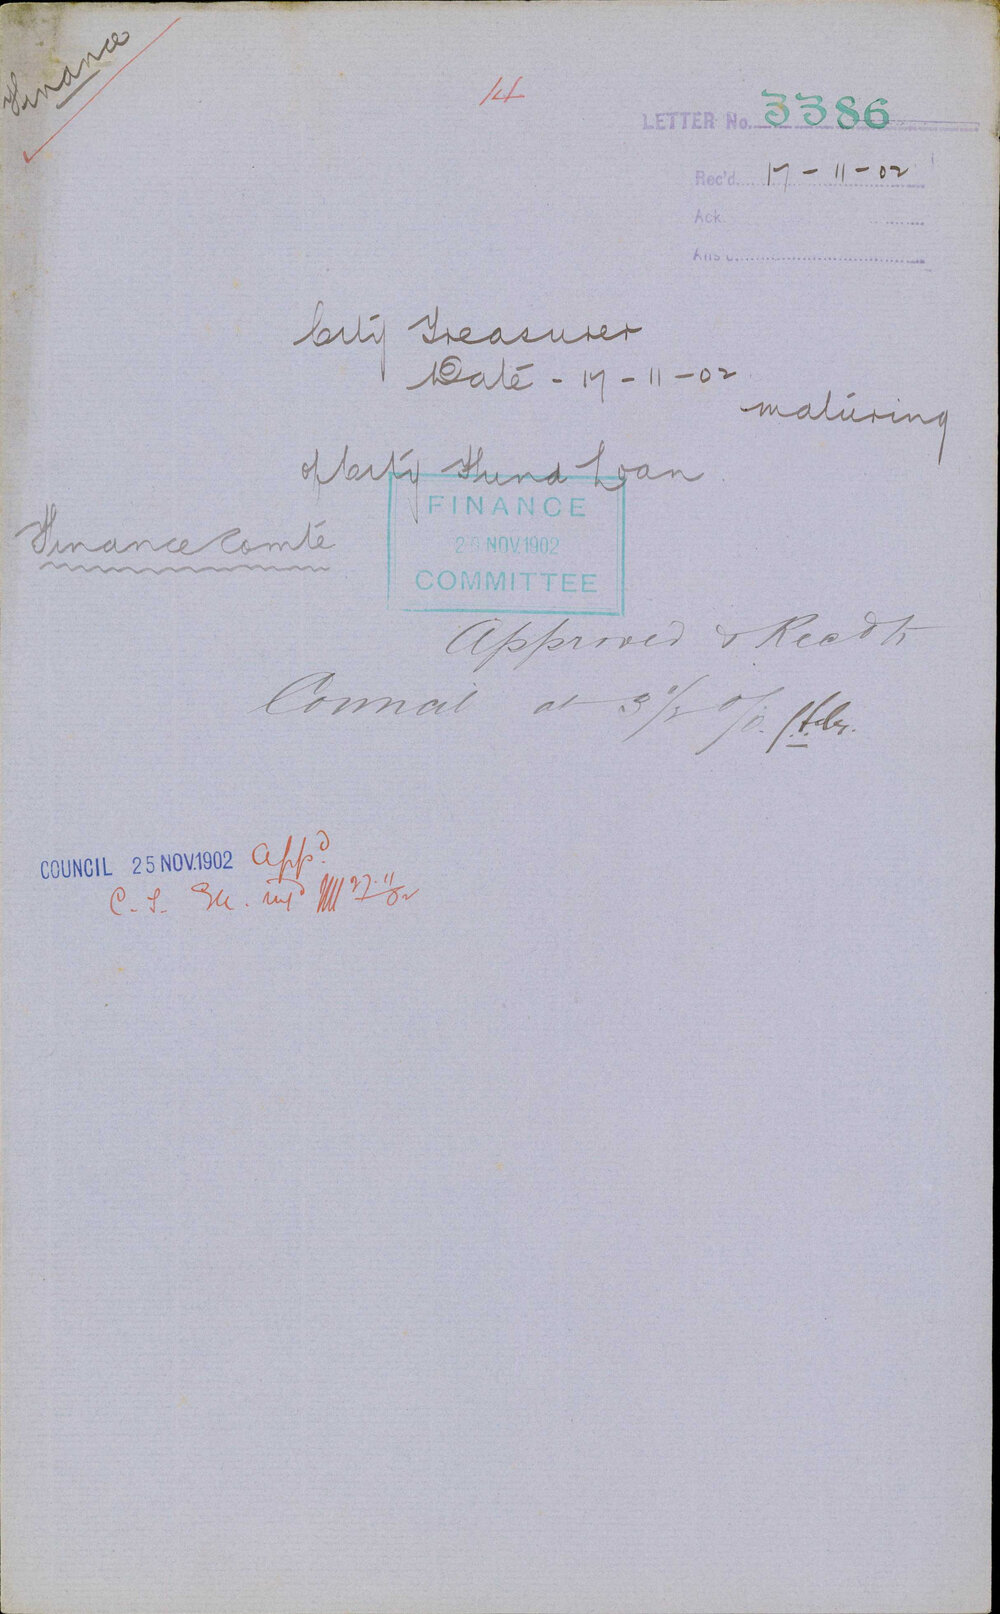 Finance
14
LETTER No. 3386
Rec'd. 17-11-02
Ack.
Ans'd.
City Treasurer
Date - 17-11-02
maturing
of City Fund Loan
FINANCE
NOV.1902
COMMITTEE
Finance Comte
Approved & Recd to
Council at 3½ %
COUNCIL 25 NOV.1902 Appd.
C.T.